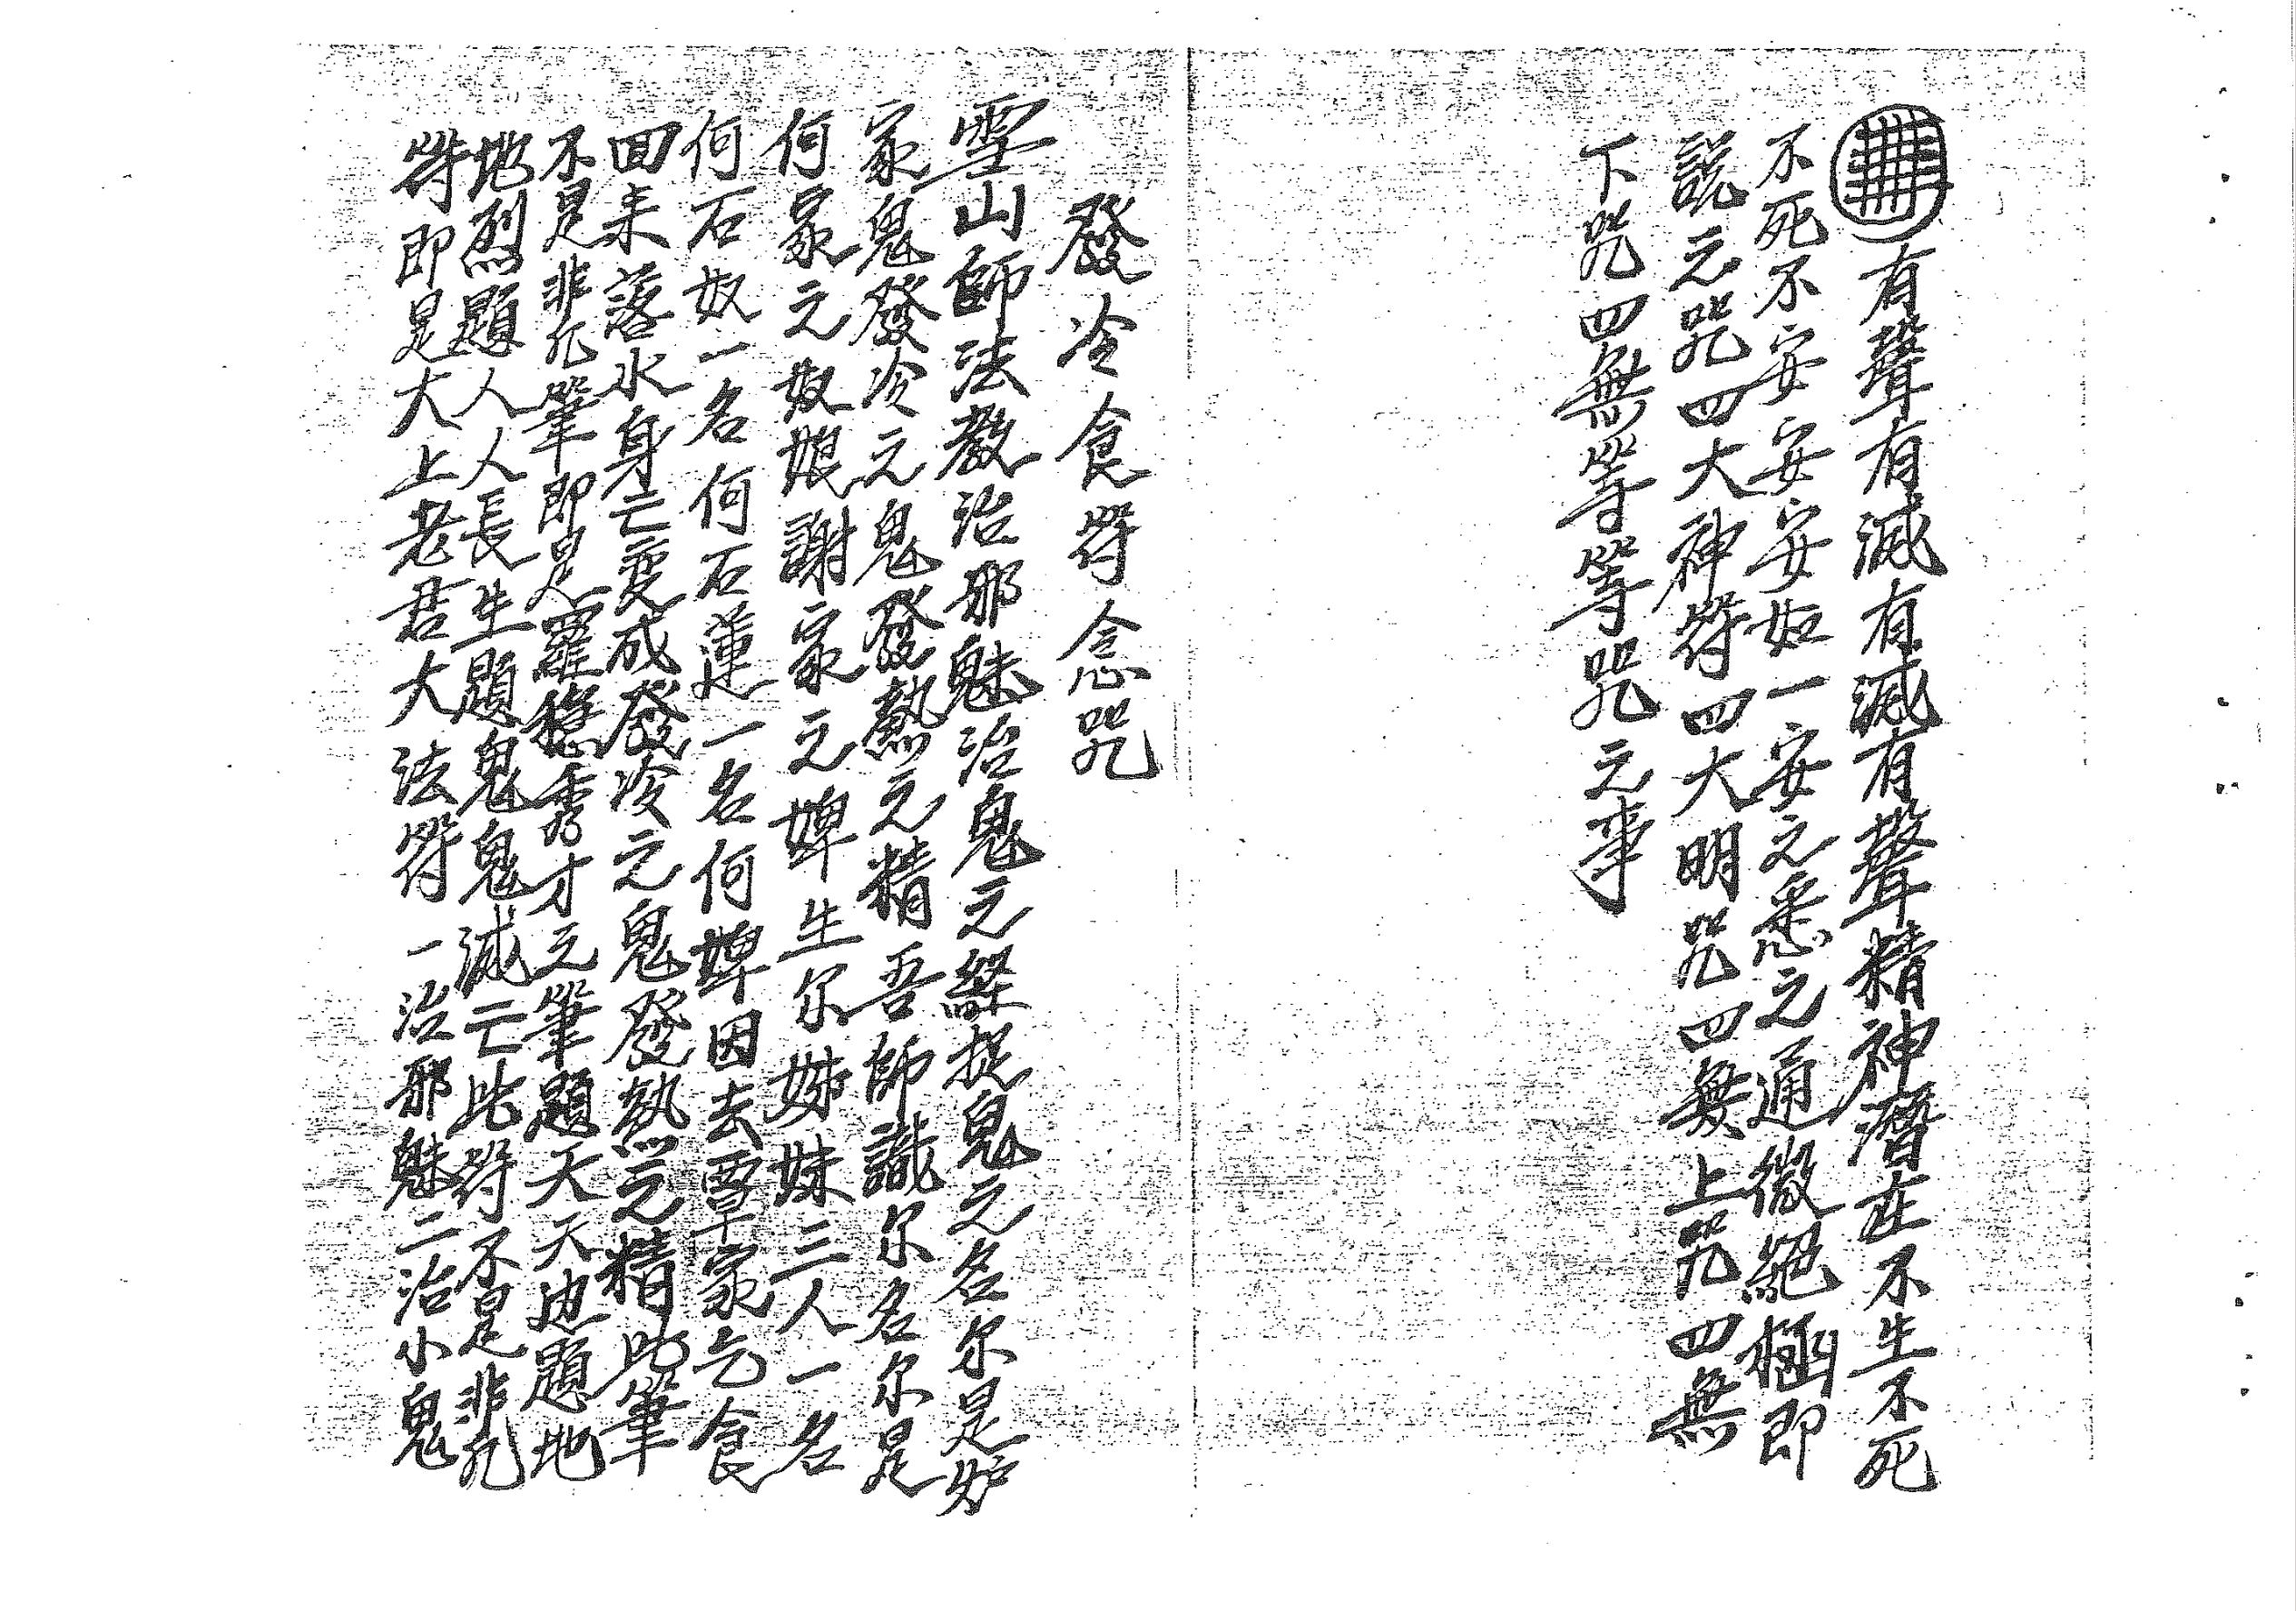 有聲有滅有滅有聲精神潛在不生不死
不死不安安安如一安之悉之通微絕極即
說之咒四大神符四大明咒四無上咒四無
下咒四無等等咒之事
發冷食符念咒
雪山師法教治邪魅治鬼之經捉鬼之名尔是妒
家鬼發冷之鬼發熱之精吾師識尔名尔是
何家之奴娘謝家之婢生尔姊妹三人一名
何石奴一名何石蓮一名何婢因去覃家乞食
回来落水身亡变成發冷之鬼發熱之精此筆
不是非凡筆即是羅穩秀才之筆題天天边題地
地烈題人人長生題鬼鬼滅亡此符不是非凡
符即是大上老君大法符一治邪魅二治小鬼